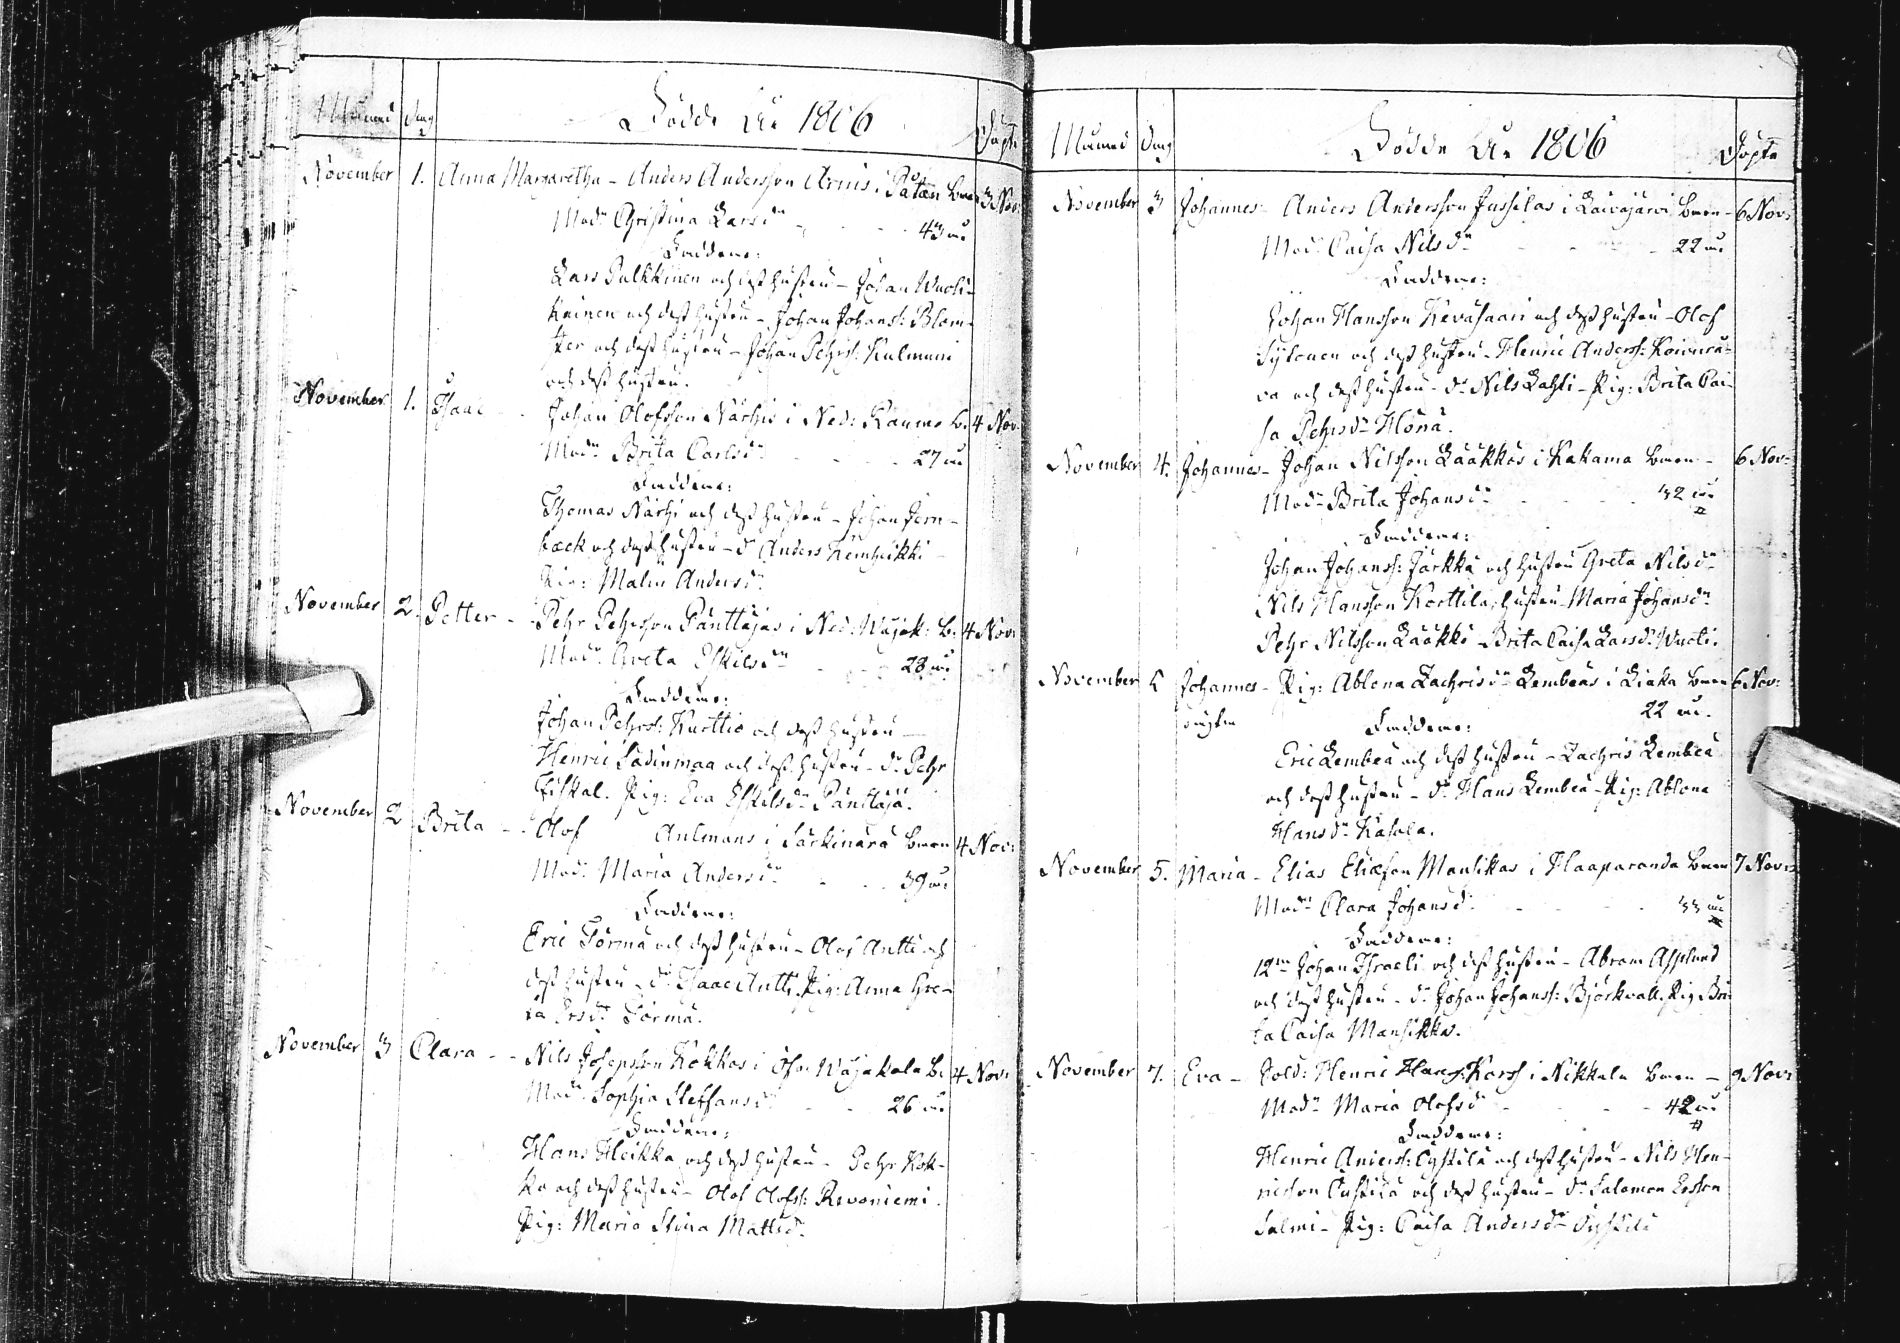 Månad Dag Födde År 1806 Döpte
November 1. Anna Margaretha - Anders Andersson Arius i Båtan bonn 3 Nov:
Modn Christina Larsdn 43 år
Faddrar:
Lars Palkkinen och dess hustru - Johan Wuoli-
kainen och dess hustru - Johan Johanss: Blom-
ster och dess hustru - Johan Pehrss: Kulmuni
och dess hustru.
November 1. Isaac - Johan Olofsson Närhis i Ned: Raumo b: 4 Nov:
Modn Brita Carlsdn 27 år
Faddrar:
Thomas Närhi och dess hustru - Johan Jern-
bæck och dess hustru - dr Anders Kemheikki -
Pig: Malin Andersdn
November 2. Petter - Pehr Pehrsson Panttajas i Ned: Wojak: b: 4 Nov:
Modn Greta Eskilsdn 28 år
Faddrar:
Johan Pehrss: Kurttio och dess hustru -
Henric Sadinmaa och dess hustru - dr Pehr
Fiskal. Pig: Eva Eskilsdn Panttaja.
November 2 Brita - Olof Aulmans i Särkinärä bonn 4 Nov:
Modn Maria Andersdn 39 år
Faddrar:
Eric Törmä och dess hustru - Olof Antti och
dess hustru - dr Isaac Antti. Pig: Anna Gre-
ta Ersdn Törmä.
November 3 Clara - Nils Josepsson Kokkos i Öfr: Wojakala b: 4 Nov:
Modn Sophia Steffansdn 26 år
Faddrar:
Hans Heikka och dess hustru - Pehr Kok-
ko och dess hustru - Olof Olofss: Revoniemi.
Pig: Maria Stina Mattsd.
Månad Dag Födde År 1806 Döpte
November 3 Johannes - Anders Andersson Jussilas i Laivajärvi bonn - 6 Nov:
Modn Caisa Nilsdn 22 år
Faddrar:
Johan Hansson Kevasaari och dess hustru - Olof
Sylönen och dess hustru - Henric Anderss: Koivura-
va och dess hustru - dr Nils Lahti - Pig: Brita Cai-
sa Pehrsdn Hönä.
November 4. Johannes - Johan Nilsson Lääkkös i Kakama bonn - 6 Nov:
Modn Brita Johansdn 32 år
Faddrar:
Johan Johanss: Järkkä och hustru Greta Nilsdn
Nils Hansson Korttila, hustru Maria Johansdn
Pehr Nilsson Lääkkö - Brita Caisa Larsd: Wuoti.
November 5 Johannes - Pig: Ablona Zachrisdn Lembeäs i Liaka bonn 6 Nov:
oägta 22 år.
Faddrar:
Eric Lembeä och dess hustru - Zachris Lembeä
och dess hustru - dr Hans Lembeä - Pig: Ablona
Hansdn Kasala.
November 5. Maria - Elias Eliæson Mansikkas i Haaparanda bonn 7 Nov:
Modn Clara Johansdn 33 år
Faddrar:
12mn Johan Israeli och dess hustru - Abram Asplund
och dess hustru - dr Johan Johanss: Björkvall. Pig Bri-
ta Caisa Mansikka.
November 7. Eva - Sold: Henric Korss i Nikkala bonn - 9 Nov:
Modn Maria Olofsd 42 år
Faddrar:
Henric Anderss: Cystilä och dess hustru - Nils Hen-
ricsson Cystilä och dess hustru - dr Salomon Ersson
Salmi - Pig: Caisa Andersdn Cystilä